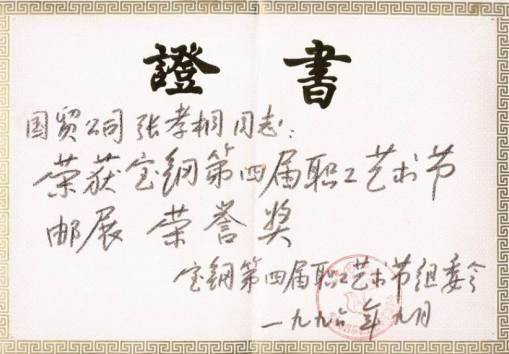 證書
国贸公司张孝桐同志：
荣获宝钢第四届职工艺术节
邮展 荣誉奖
宝钢第四届职工艺术节组委会
一九九六年九月